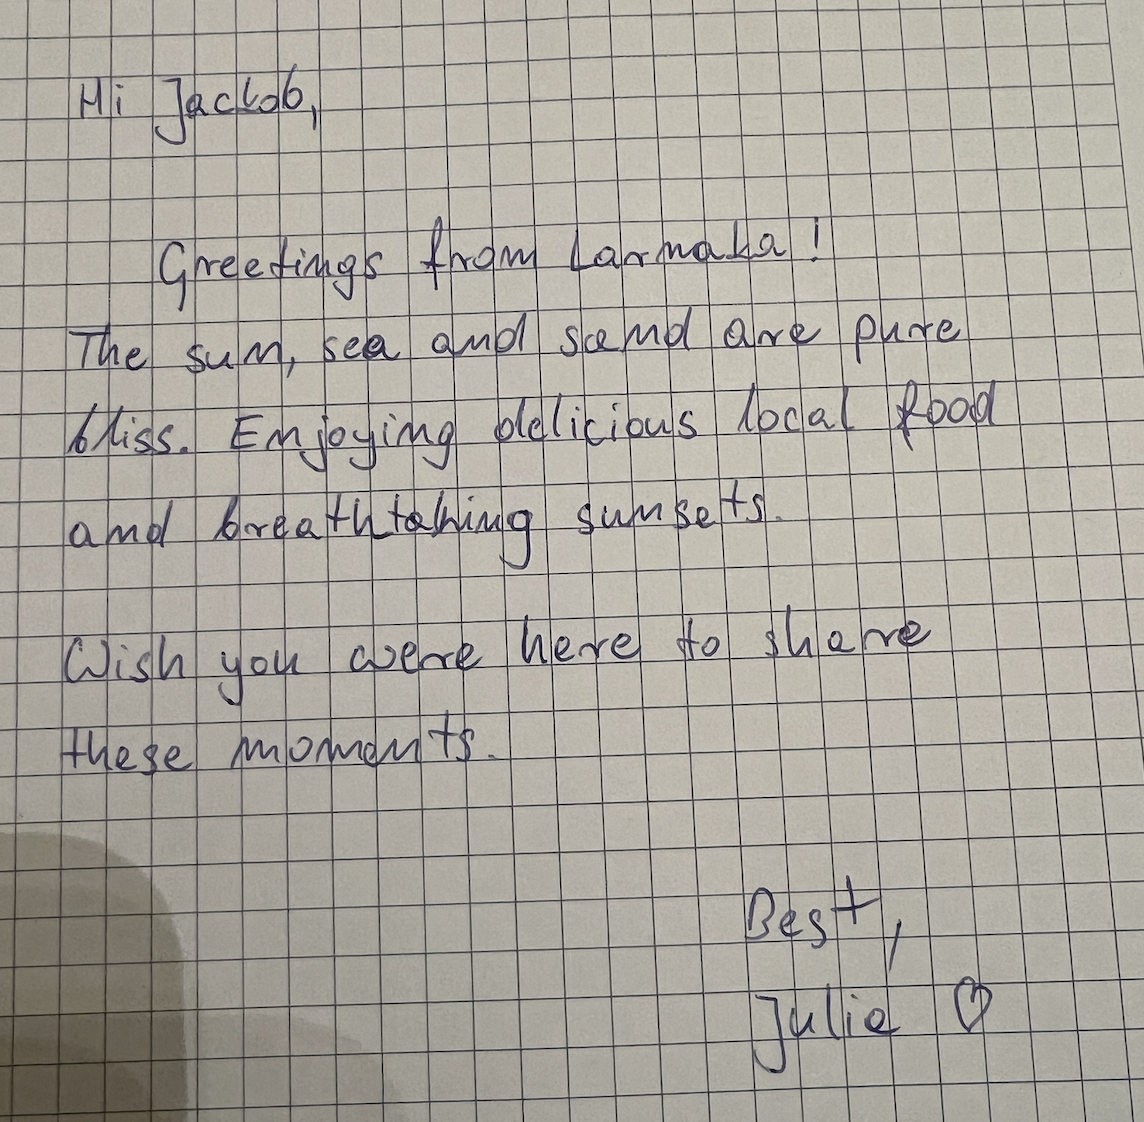 Hi Jackob,
Greetings from Larnaka!
The sun, sea and sand are pure
bliss. Enjoying delicious local food
and breathtaking sunsets.
Wish you were here to share
these moments.
Best,
Julia ♡